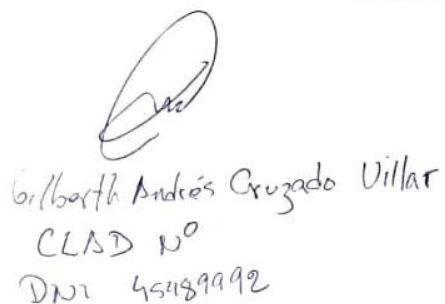 Gilberth Andrés Cruzado Villar
CLAD Nº
DNI 45489992